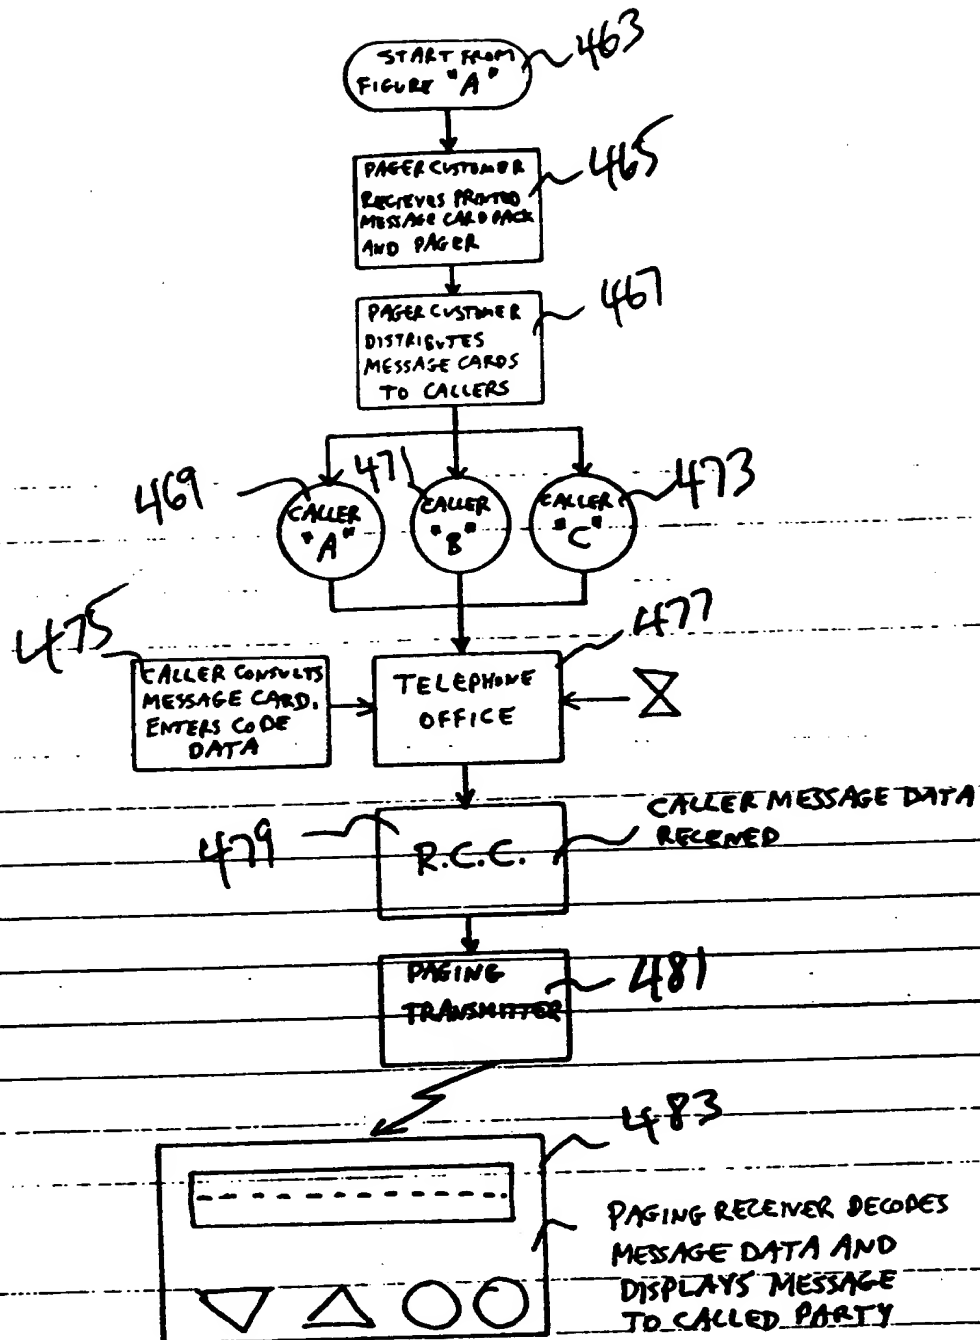 START FROM
FIGURE "A"
463
PAGER CUSTOMER
RECIEVES PRINTED
MESSAGE CARD PACK
AND PAGER
465
PAGER CUSTOMER
DISTRIBUTES
MESSAGE CARDS
TO CALLERS
467
469
CALLER
"A"
471
CALLER
"B"
CALLER
"C"
473
475
CALLER CONSULTS
MESSAGE CARD.
ENTERS CODE
DATA
TELEPHONE
OFFICE
477
479
R.C.C.
CALLER MESSAGE DATA
RECEIVED
PAGING
TRANSMITTER
481
483
PAGING RECEIVER DECODES
MESSAGE DATA AND
DISPLAYS MESSAGE
TO CALLED PARTY